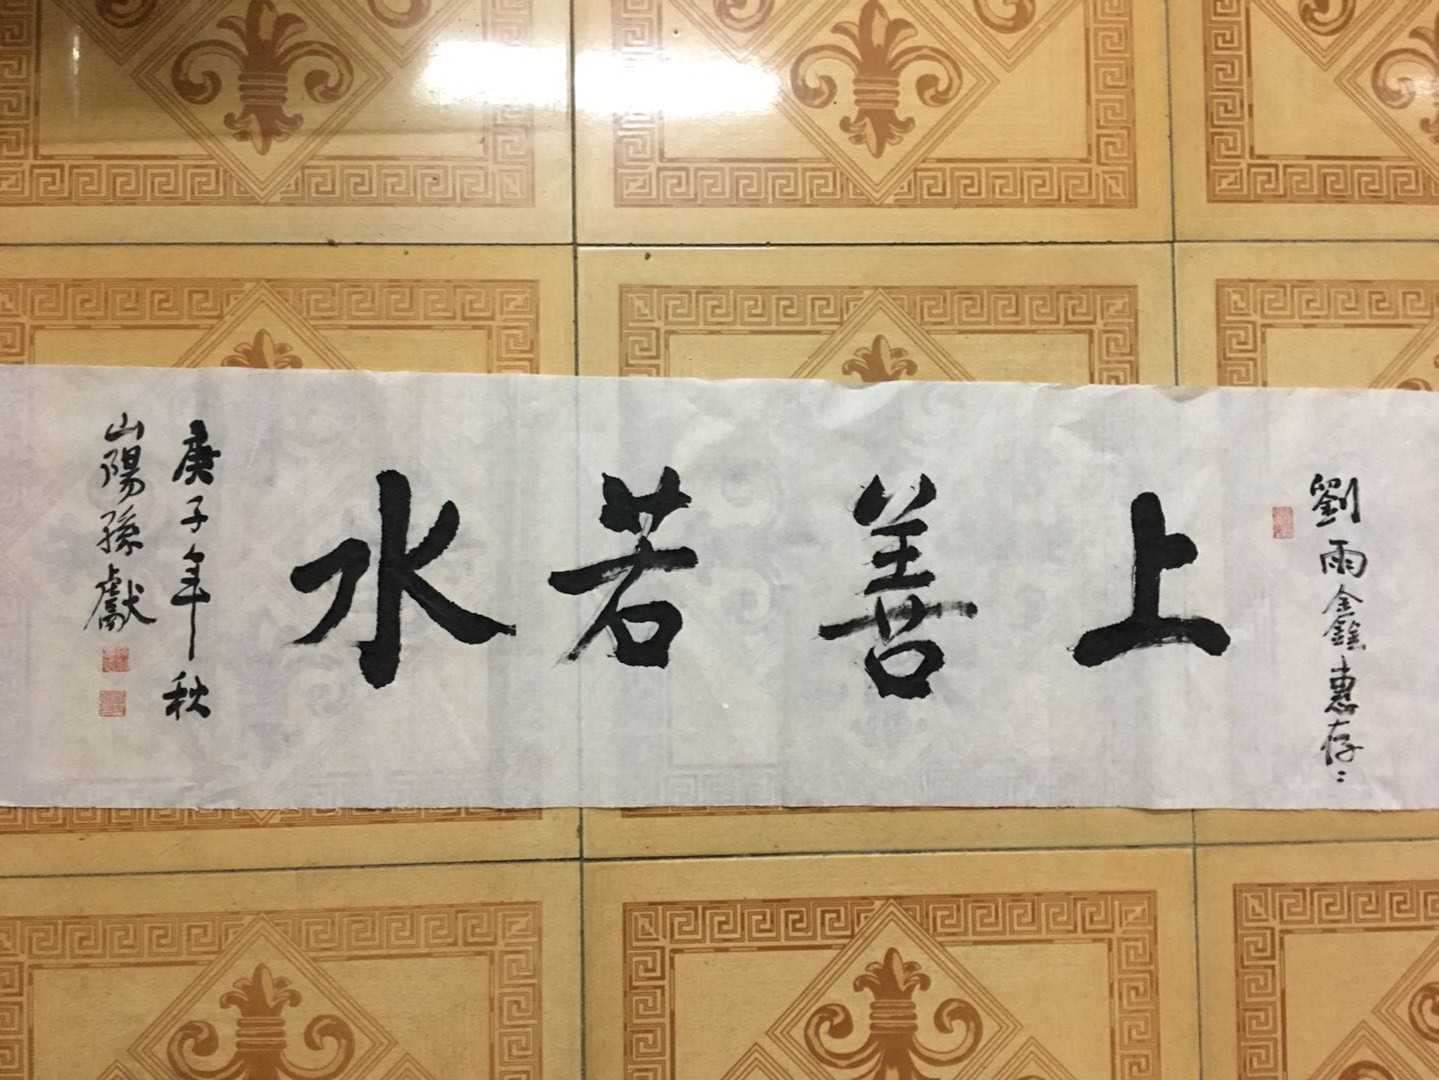 劉雨鑫惠存
上善若水
庚子年秋
山陽孫獻